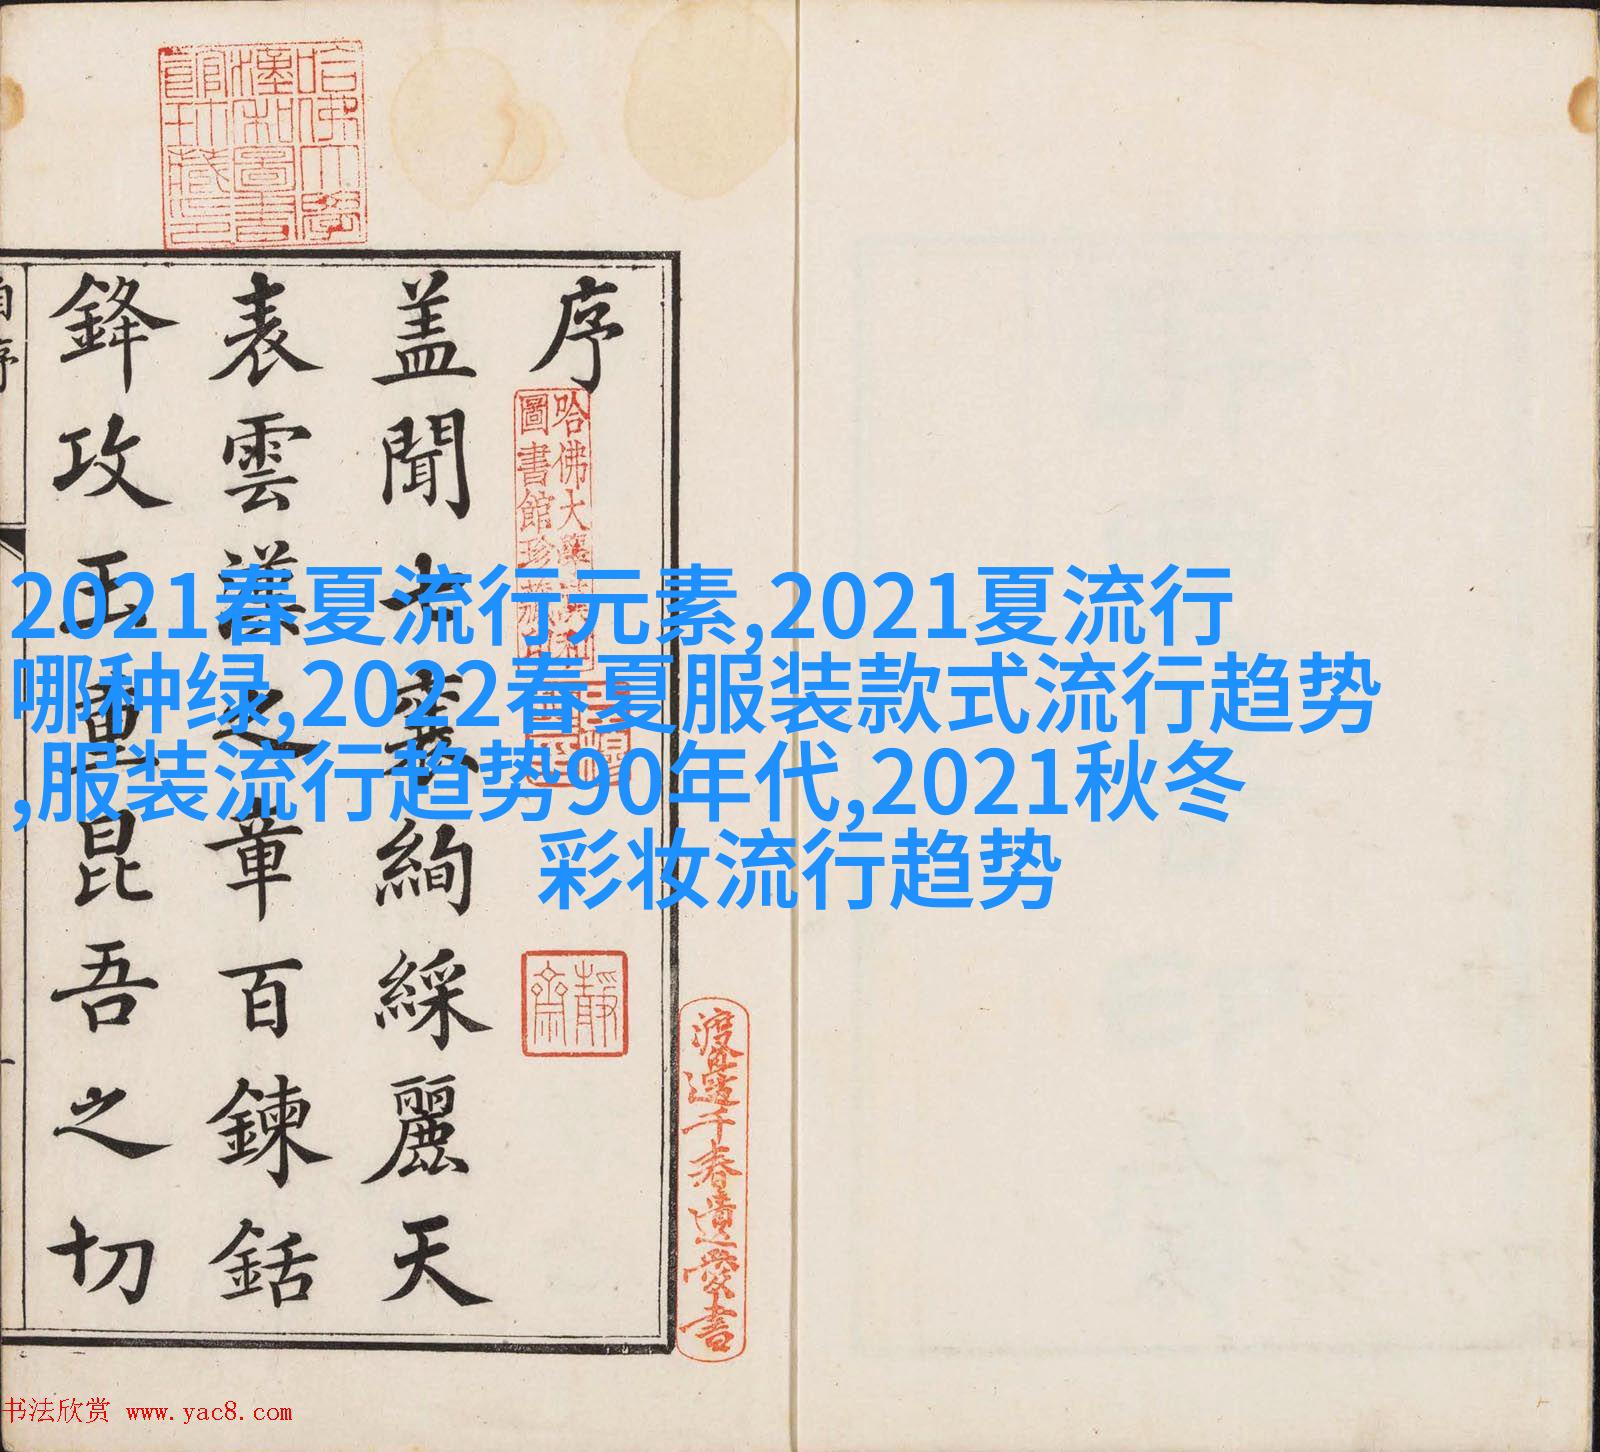 哈佛大學
漢和圖書
館珍藏印
序
盖聞七襄絢綵麗天
表雲漢之章百鍊銛
鋒攻玉昆吾之切
自序
哈佛大學漢和
圖書館珍藏印
靜齋
渡邊千春遺愛書
2021春夏流行元素,2021夏流行
哪种绿,2022春夏服装款式流行趋势
,服装流行趋势90年代,2021秋冬
彩妆流行趋势
书法欣赏 www.yac8.com